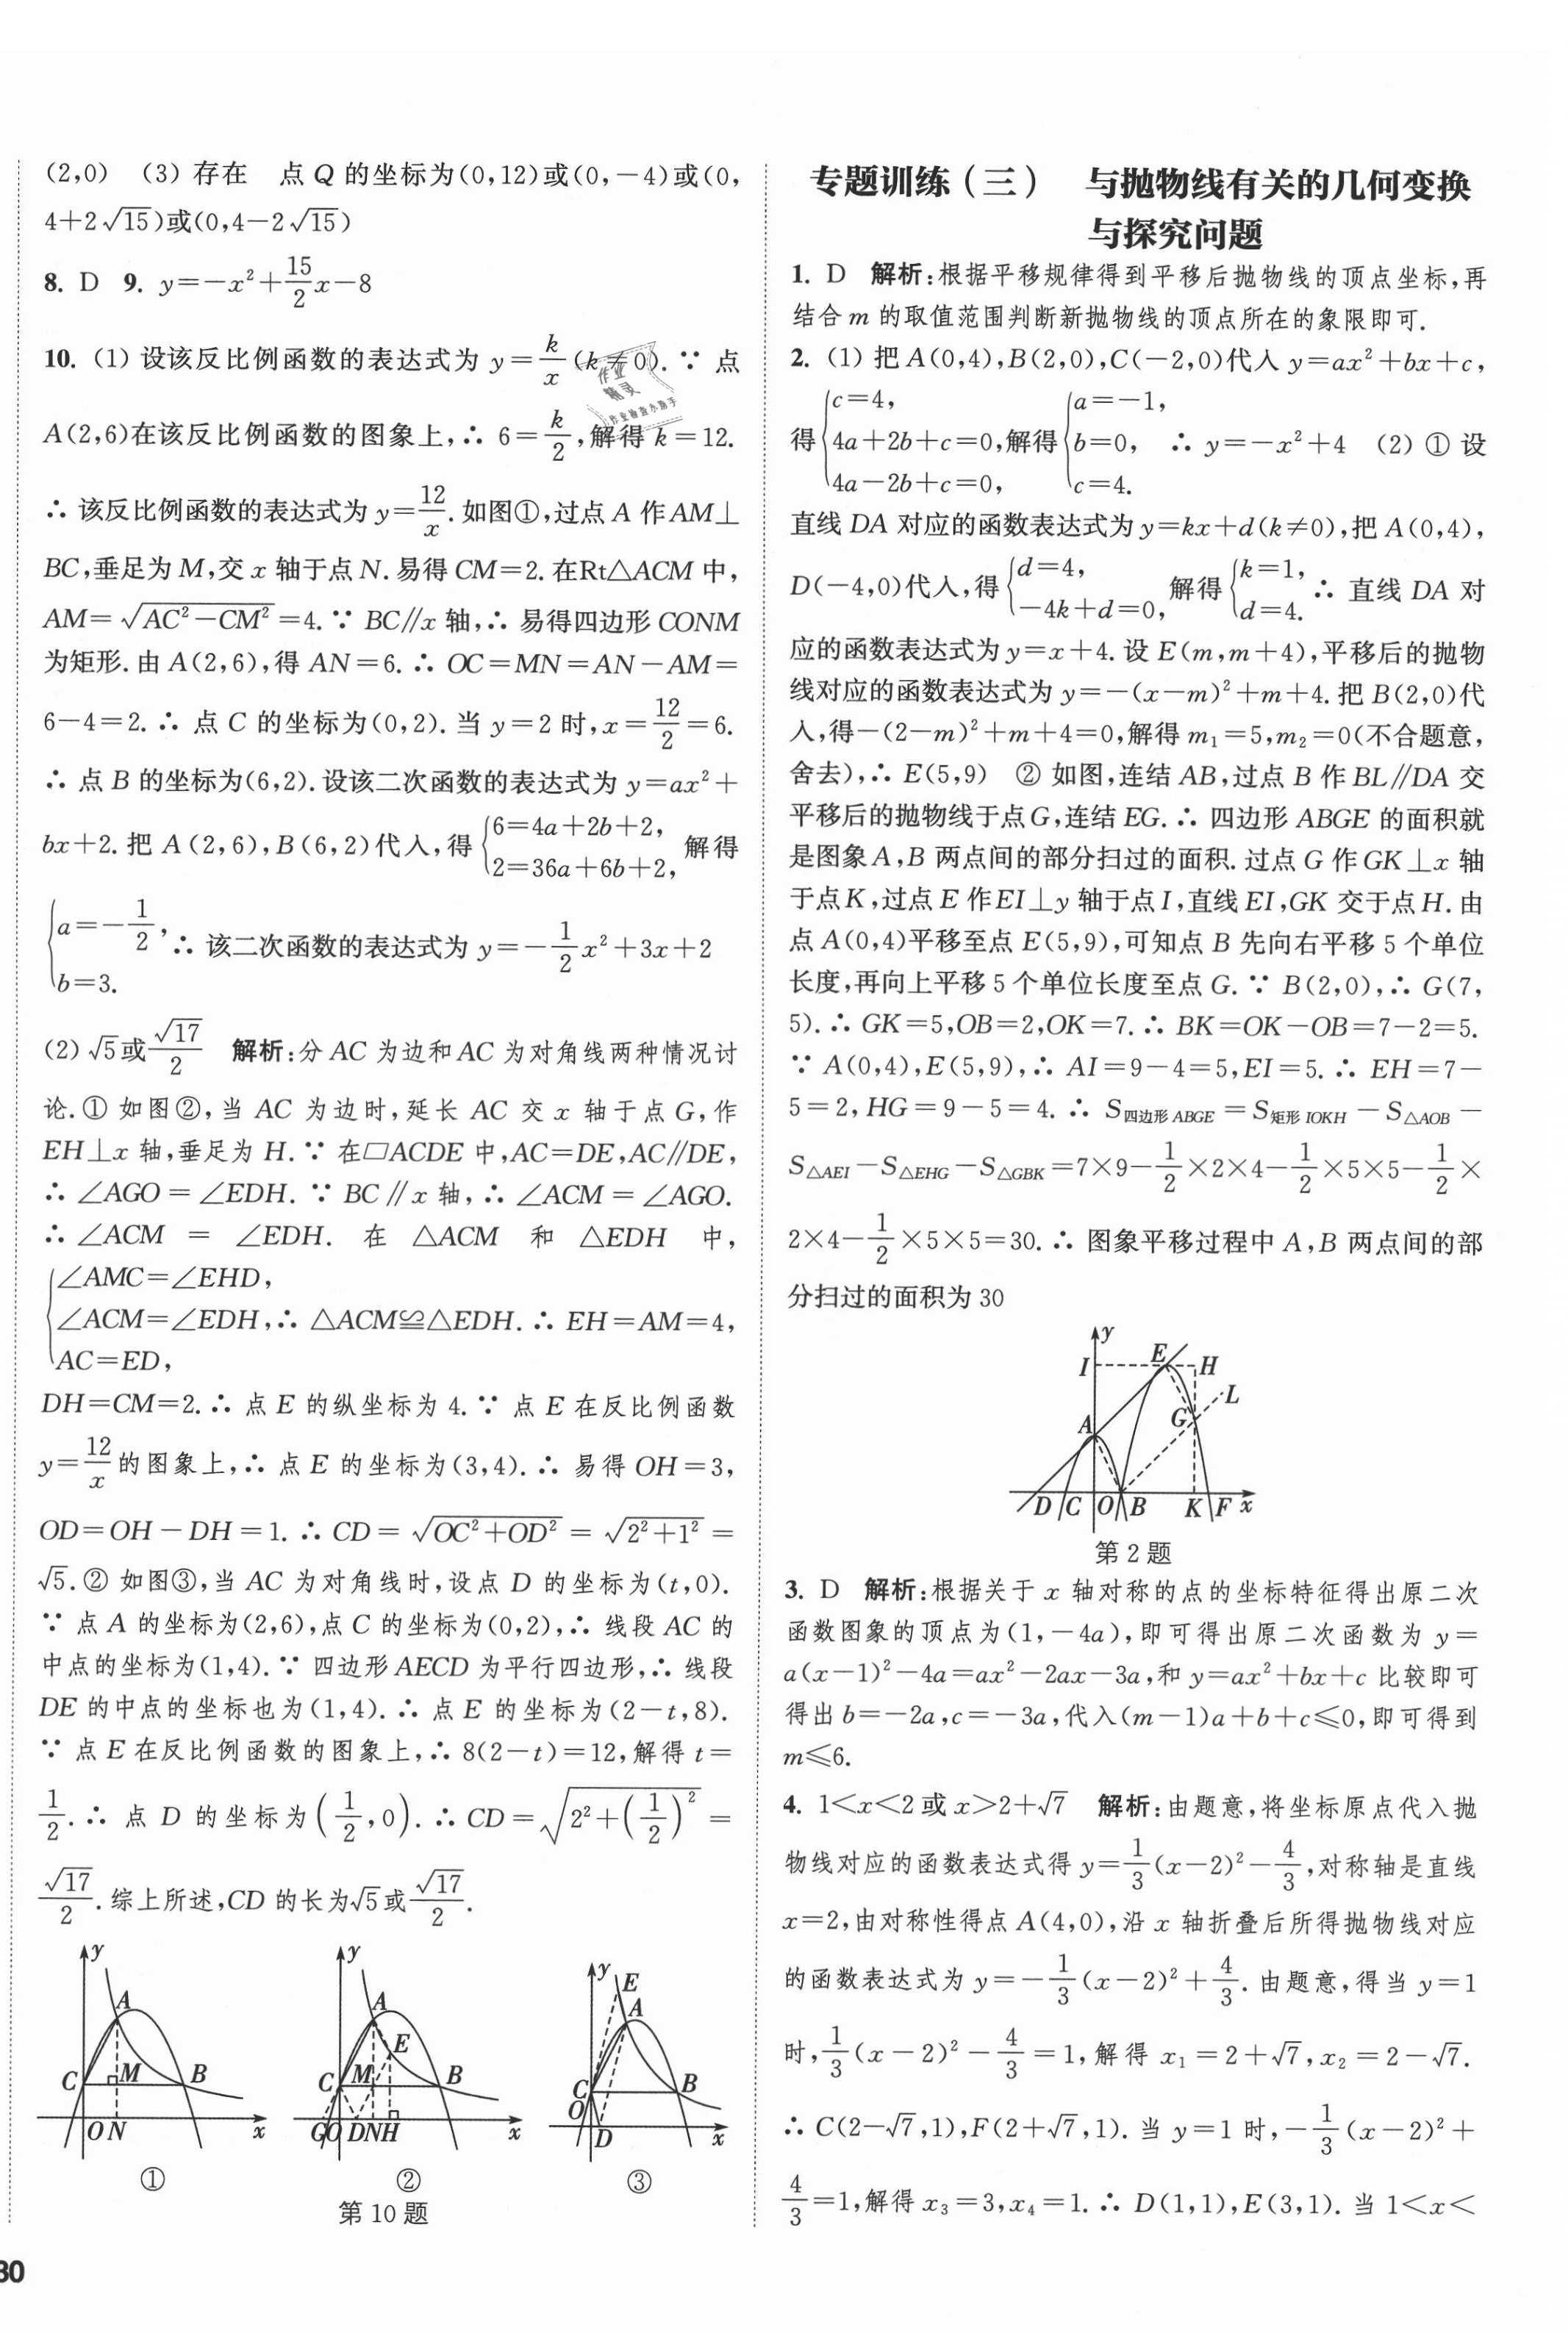 (2,0) (3) 存在 点 Q 的坐标为(0,12)或(0,−4)或(0,
4+2√15)或(0,4−2√15)
8. D 9. y=−x²+15/2x−8
10. (1) 设该反比例函数的表达式为 y=k/x(k≠0).∵ 点
A(2,6)在该反比例函数的图象上,∴ 6=k/2,解得 k=12.
∴ 该反比例函数的表达式为 y=12/x.如图①,过点 A 作 AM⊥
BC,垂足为 M,交 x 轴于点 N.易得 CM=2.在Rt△ACM 中,
AM=√(AC²−CM²)=4.∵ BC∥x 轴,∴ 易得四边形 CONM
为矩形.由 A(2,6),得 AN=6.∴ OC=MN=AN−AM=
6−4=2.∴ 点 C 的坐标为(0,2).当 y=2 时,x=12/2=6.
∴ 点 B 的坐标为(6,2).设该二次函数的表达式为 y=ax²+
bx+2.把 A(2,6),B(6,2)代入,得{6=4a+2b+2, 2=36a+6b+2, 解得
{a=−1/2, b=3. ∴ 该二次函数的表达式为 y=−1/2x²+3x+2
(2) √5或√17/2 解析:分 AC 为边和 AC 为对角线两种情况讨
论.① 如图②,当 AC 为边时,延长 AC 交 x 轴于点 G,作
EH⊥x 轴,垂足为 H.∵ 在▱ACDE 中,AC=DE,AC∥DE,
∴ ∠AGO=∠EDH.∵ BC∥x 轴,∴ ∠ACM=∠AGO.
∴ ∠ACM = ∠EDH. 在 △ACM 和 △EDH 中,
{∠AMC=∠EHD,
∠ACM=∠EDH,∴ △ACM≌△EDH.∴ EH=AM=4,
AC=ED,
DH=CM=2.∴ 点 E 的纵坐标为 4.∵ 点 E 在反比例函数
y=12/x的图象上,∴ 点 E 的坐标为(3,4).∴ 易得 OH=3,
OD=OH−DH=1.∴ CD=√(OC²+OD²)=√(2²+1²)=
√5.② 如图③,当 AC 为对角线时,设点 D 的坐标为(t,0).
∵ 点 A 的坐标为(2,6),点 C 的坐标为(0,2),∴ 线段 AC 的
中点的坐标为(1,4).∵ 四边形 AECD 为平行四边形,∴ 线段
DE 的中点的坐标也为(1,4).∴ 点 E 的坐标为(2−t,8).
∵ 点 E 在反比例函数的图象上,∴ 8(2−t)=12,解得 t=
1/2.∴ 点 D 的坐标为(1/2,0).∴ CD=√(2²+(1/2)²)=
√17/2.综上所述,CD 的长为√5或√17/2.
y A C M B O N x
①
y A E C M B G O D N H x
②
y E A C B O D x
③
第 10 题
30
专题训练(三) 与抛物线有关的几何变换
与探究问题
1. D 解析:根据平移规律得到平移后抛物线的顶点坐标,再
结合 m 的取值范围判断新抛物线的顶点所在的象限即可.
2. (1) 把 A(0,4),B(2,0),C(−2,0)代入 y=ax²+bx+c,
得{c=4, 4a+2b+c=0, 4a−2b+c=0, 解得{a=−1, b=0, c=4. ∴ y=−x²+4 (2) ① 设
直线 DA 对应的函数表达式为 y=kx+d(k≠0),把 A(0,4),
D(−4,0)代入,得{d=4, −4k+d=0, 解得{k=1, d=4. ∴ 直线 DA 对
应的函数表达式为 y=x+4.设 E(m,m+4),平移后的抛物
线对应的函数表达式为 y=−(x−m)²+m+4.把 B(2,0)代
入,得−(2−m)²+m+4=0,解得 m₁=5,m₂=0(不合题意,
舍去),∴ E(5,9) ② 如图,连结 AB,过点 B 作 BL∥DA 交
平移后的抛物线于点 G,连结 EG.∴ 四边形 ABGE 的面积就
是图象 A,B 两点间的部分扫过的面积.过点 G 作 GK⊥x 轴
于点 K,过点 E 作 EI⊥y 轴于点 I,直线 EI,GK 交于点 H.由
点 A(0,4)平移至点 E(5,9),可知点 B 先向右平移 5 个单位
长度,再向上平移 5 个单位长度至点 G.∵ B(2,0),∴ G(7,
5).∴ GK=5,OB=2,OK=7.∴ BK=OK−OB=7−2=5.
∵ A(0,4),E(5,9),∴ AI=9−4=5,EI=5.∴ EH=7−
5=2,HG=9−5=4.∴ S四边形ABGE=S矩形IOKH−S△AOB−
S△AEI−S△EHG−S△GBK=7×9−1/2×2×4−1/2×5×5−1/2×
2×4−1/2×5×5=30.∴ 图象平移过程中 A,B 两点间的部
分扫过的面积为 30
y I E H L G A D C O B K F x
第 2 题
3. D 解析:根据关于 x 轴对称的点的坐标特征得出原二次
函数图象的顶点为(1,−4a),即可得出原二次函数为 y=
a(x−1)²−4a=ax²−2ax−3a,和 y=ax²+bx+c 比较即可
得出 b=−2a,c=−3a,代入(m−1)a+b+c≤0,即可得到
m≤6.
4. 1<x<2 或 x>2+√7 解析:由题意,将坐标原点代入抛
物线对应的函数表达式得 y=1/3(x−2)²−4/3,对称轴是直线
x=2,由对称性得点 A(4,0),沿 x 轴折叠后所得抛物线对应
的函数表达式为 y=−1/3(x−2)²+4/3.由题意,得当 y=1
时,1/3(x−2)²−4/3=1,解得 x₁=2+√7,x₂=2−√7.
∴ C(2−√7,1),F(2+√7,1).当 y=1 时,−1/3(x−2)²+
4/3=1,解得 x₃=3,x₄=1.∴ D(1,1),E(3,1).当 1<x<